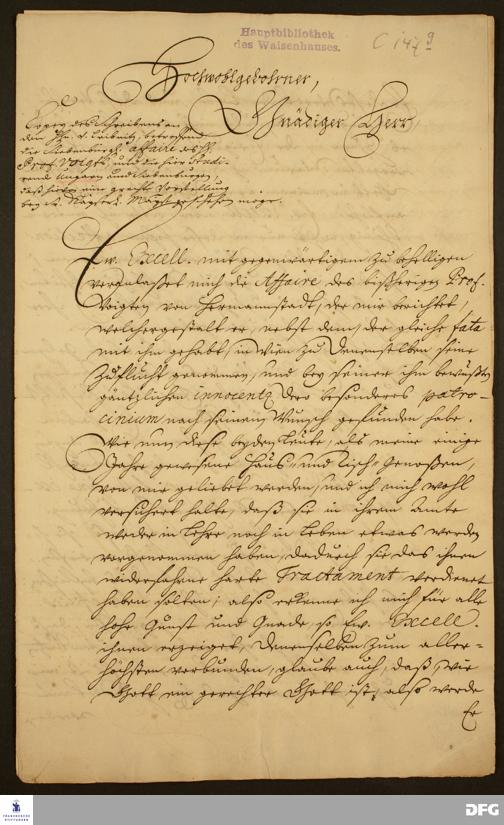 Hauptbibliothek
des Waisenhauses.
C 147 g
Hochwohlgebohrner,
Gnädiger Herr,
Copey des Schreibens an
den Hn. v. Leibnitz, betreffend
die Siebenbürgl. affaire des H.
Prof. Voigts, und die hier Studi-
rende Ungarn und Siebenbürger,
daß hierin eine gerechte Vorstellung
bey Kayserl. Mayst. geschehen möge.
Ew. Excell. mit gegenwärtigem zu behelligen
veranlaßet mich die Affaire des bißherigen Prof.
Voigten von Hermannstadt, der mir berichtet,
welchergestalt er, nebst dem, der gleiche fata
mit ihm gehabt, in Wien zu Denenselben seine
Zuflucht genommen, und bey seiner ihm bewußten
gäntzlichen innocentz dero besonderes patro-
cinium nach seinem Wunsch gefunden habe.
Wie nun diese beyden Leute, als meine einige
Jahre gewesene Hauß- und Tisch-Genoßen,
von mir geliebet werden, und ich mich wohl
versichert halte, daß sie in ihrem Amte
weder in Lehre noch in Leben etwas werden
vorgenommen haben, dadurch sie das ihnen
wiederfahrne harte Tractament verdienet
haben solten; also erkenne ich mich für alle
hohe Gunst und Gnade, so Ew. Excell.
ihnen erzeiget, Denenselben zum aller-
höchsten verbunden, glaube auch, daß, wie
Gott ein gerechter Gott ist, also werde
Er
FRANCKESCHE
STIFTUNGEN
DFG